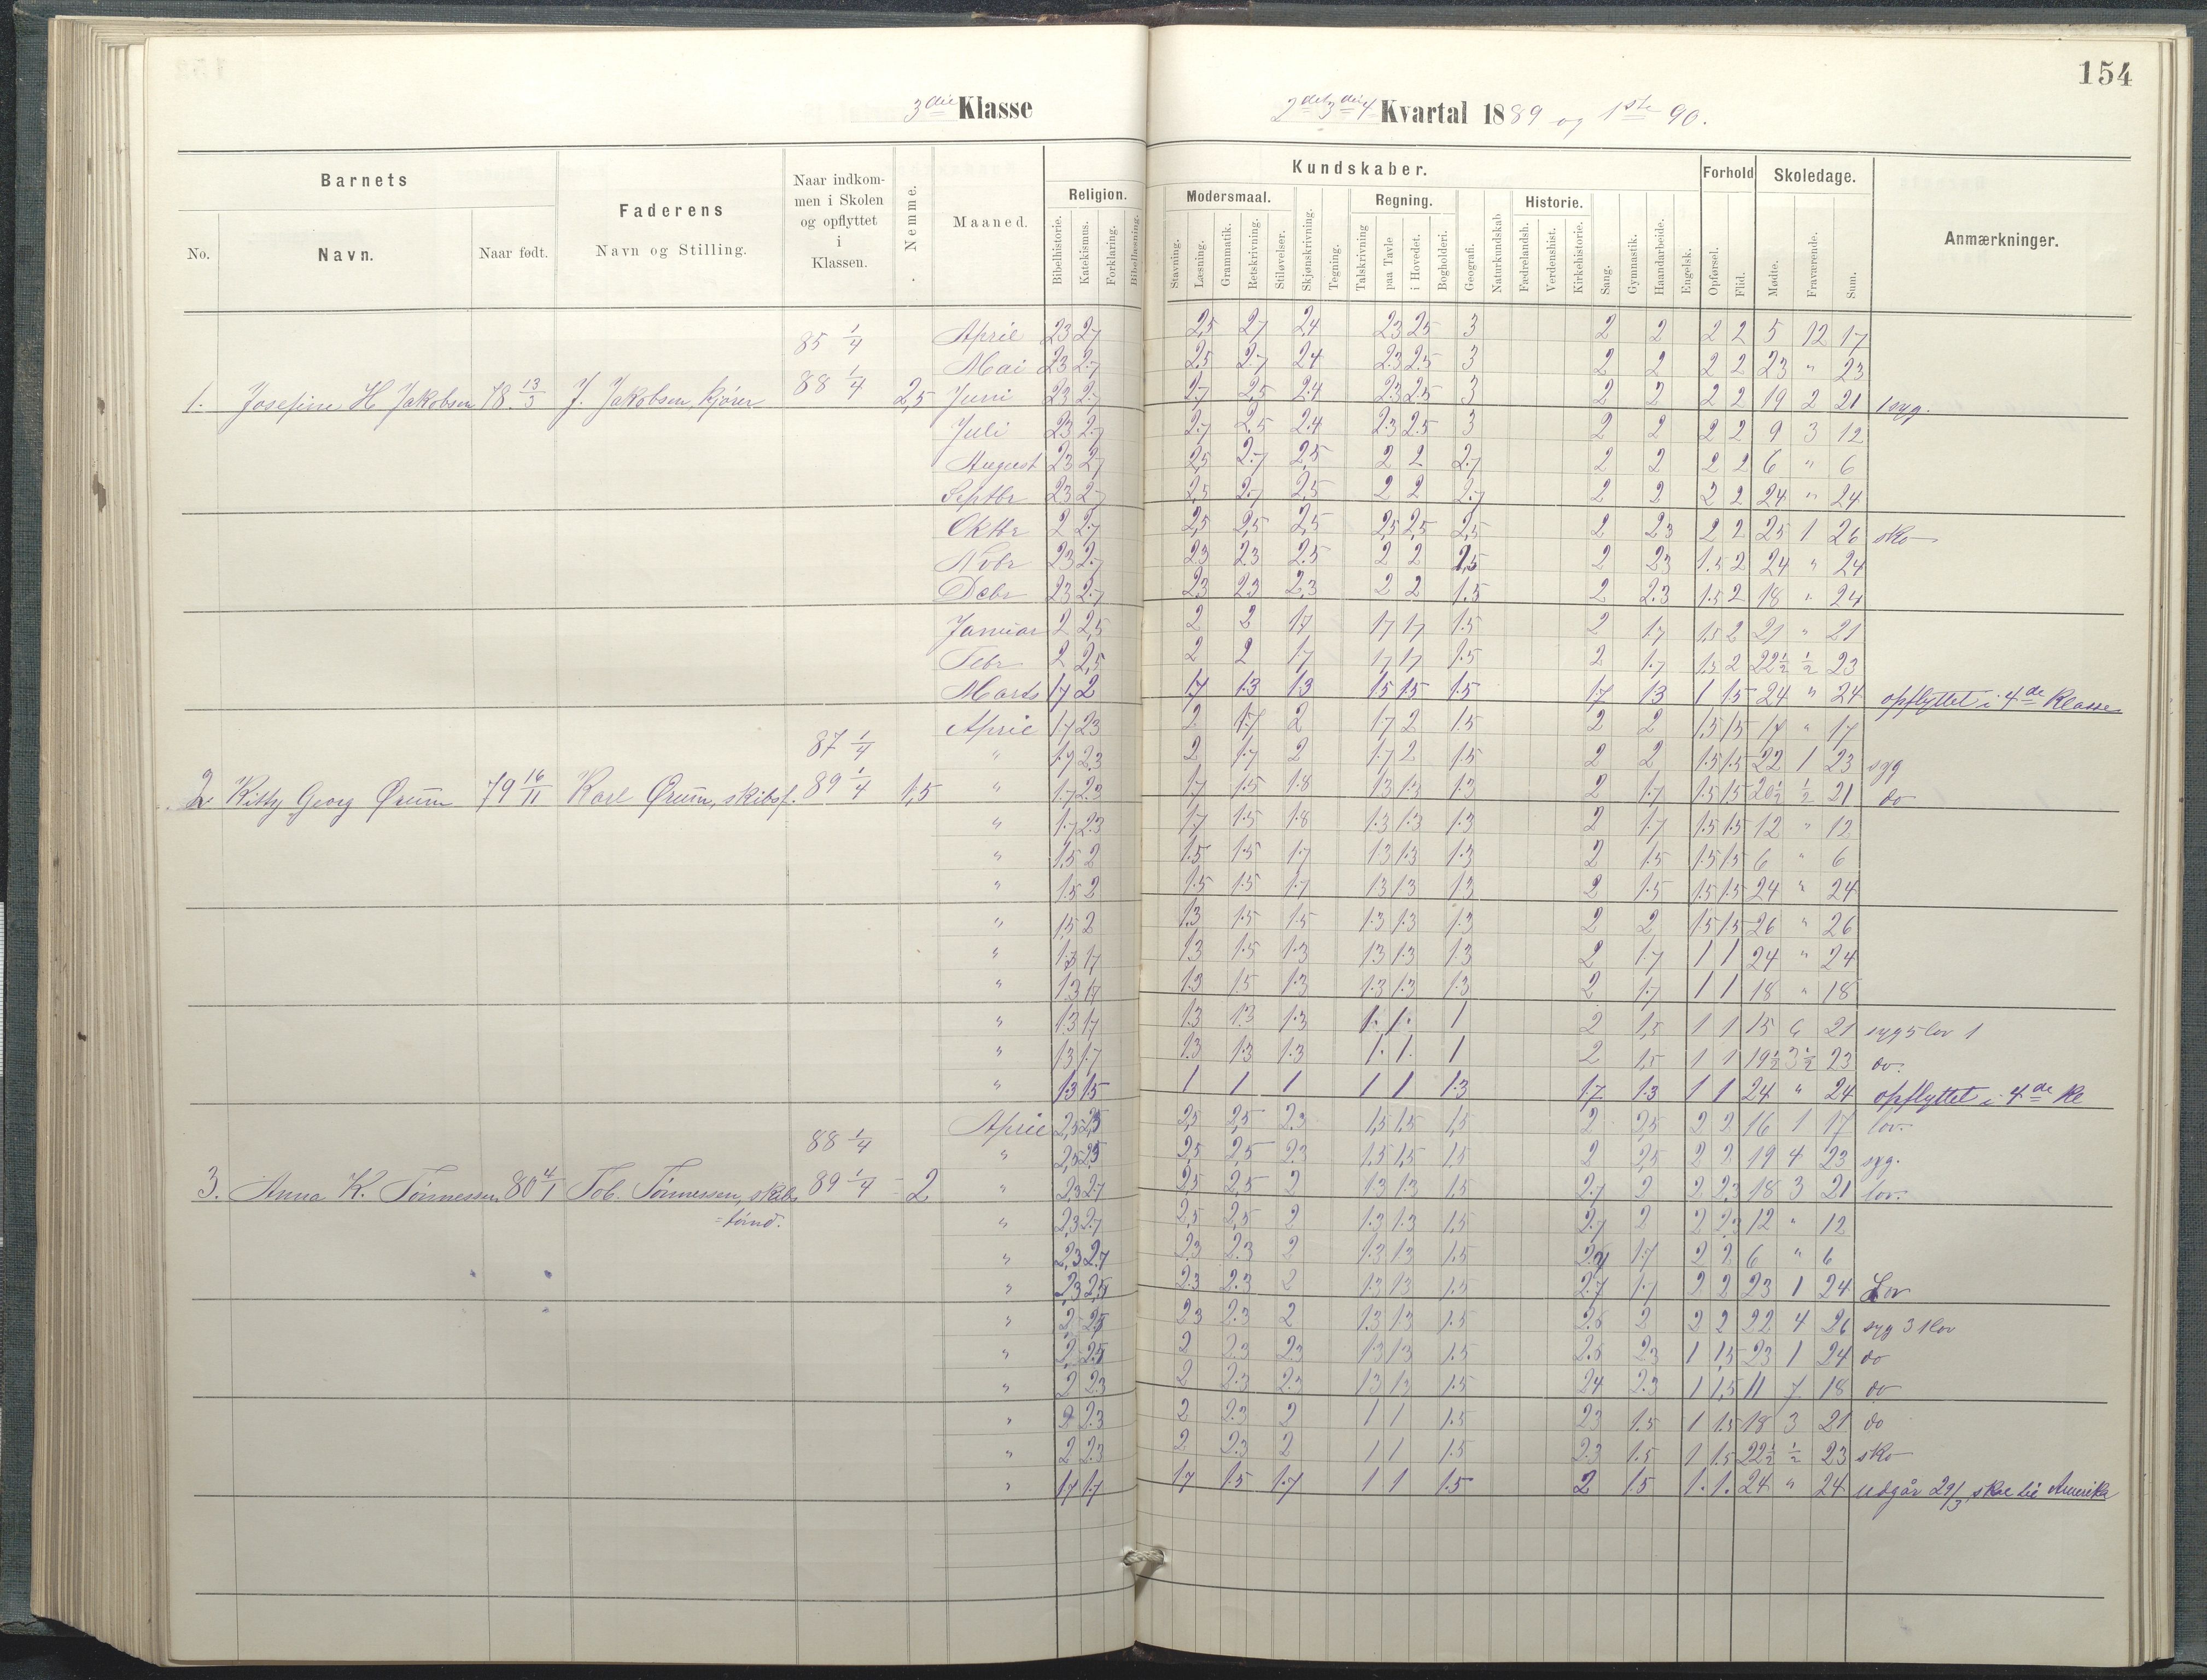 154
3die Klasse
2det 3die 4 Kvartal 1889 og 1ste 90.
Barnets
No.
Navn.
Naar født.
Faderens
Navn og Stilling.
Naar indkom-
men i Skolen
og opflyttet
i
Klassen.
Nemme.
Maaned.
Religion.
Bibelhistorie.
Katekismus.
Forklaring.
Bibellæsning.
Kundskaber.
Modersmaal.
Stavning.
Læsning.
Grammatik.
Retskrivning.
Stiløvelser.
Skjønskrivning.
Tegning.
Regning.
Talskrivning
paa Tavle
i Hovedet.
Bogholderi.
Geografi.
Naturkundskab.
Historie.
Fædrelandsh.
Verdenshist.
Kirkehistorie.
Sang.
Gymnastik.
Haandarbeide.
Engelsk.
Forhold
Opførsel.
Flid.
Skoledage.
Mødte.
Fraværende.
Sum.
Anmærkninger.
85 1/4
88 1/4
1. Josefine H Jakobsen 78 13/3 J. Jakobsen, kjører 2,5
April 23 27 25 27 24 23 25 3 2 2 2 2 5 12 17
Mai 23 2.7 2.5 2.7 24 2.3 2.5 3 2 2 2 2 23 " 23
Juni 23 2.7 2.7 2,5 2.4 2.3 2.5 3 2 2 2 2 19 2 21 1 syg.
Juli 23 2.7 2.7 2.5 2.4 2.3 2.5 3 2 2 2 2 9 3 12
August 23 27 25 2.7 25 2 2 2.7 2 2 2 2 6 " 6
Septbr 23 2.7 2,5 2.7 2,5 2 2 2.7 2 2 2 2 24 " 24
Oktbr 2 2.7 2,5 2,5 2,5 2,5 2,5 2,5 2 23 2 2 25 1 26 sko
Nvbr 23 2.7 23 23 2.5 2 2 1,5 2 23 1.5 2 24 " 24
Debr 23 2.7 23 23 2,3 2 2 1.5 2 2.3 1.5 2 18 " 24
Januar 2 2,5 2 2 1.7 1.7 1.7 1.5 2 1.7 1,5 2 21 " 21
Febr 2 2,5 2 2 1.7 1.7 1.7 1.5 2 1.7 1.5 2 22½ ½ 23
Marts 1.7 2 1.7 1.3 1.3 1.5 1.5 1.5 1.7 1.3 1 1.5 24 " 24 opflyttet i 4de Klasse
87 1/4
89 1/4
2. Kitty Georg Ørum 79 16/11 Karl Ørum, skibsf. 1,5
April 1.7 23 2 1.7 2 1.7 2 1.5 2 2 1.5 1.5 17 " 17
" 1.7 2.3 2 1.7 2 1.7 2 1.5 2 2 1.5 1.5 22 1 23 syg
" 1.7 2.3 1.7 1.5 1.8 1.3 1.3 1.3 2 1.7 1.5 1.5 20½ ½ 21 do
" 1.7 2.3 1.7 1.5 1.8 1.3 1.3 1.3 2 1.7 1.5 1.5 12 " 12
" 1.5 2 1.5 1.5 1.7 1.3 1.3 1.3 2 1.5 1.5 1.5 6 " 6
" 1.5 2 1.5 1.5 1.7 1.3 1.3 1.3 2 1.5 1.5 1.5 24 " 24
" 1,5 2 1.3 1.5 1.5 1.3 1.3 1.3 2 2 1.5 1.5 26 " 26
" 1.3 1.7 1.3 1.5 1.3 1.3 1.3 1.3 2 1.7 1 1 24 " 24
" 1.3 1.7 1.3 1.5 1.3 1.3 1.3 1.3 2 1.7 1 1 18 " 18
" 1.3 1.7 1.3 1.3 1.3 1. 1. 1 2 1,5 1 1 15 6 21 syg 5 lov 1
" 1.3 1.7 1.3 1.3 1.3 1. 1. 1 2 1,5 1 1 19½ 3½ 23 do.
" 1.3 1.5 1 1 1 1 1 1.3 1.7 1.3 1 1 24 " 24 opflyttet i 4de Kl
88 1/4
89 1/4
3. Anna K. Tönnessen 80 4/1 Tob. Tönnessen, skibs 2
=tömd.
April 2,5 2,5 2,5 2,5 2.3 1,5 1.5 1,5 2 25 2 2 16 1 17 lov.
" 2,5 2,5 2,5 2,5 23 1,5 1,5 1,5 2 2,5 2 2 19 4 23 syg.
" 2,3 2.7 2,5 2,5 2 1.3 1.3 1,5 2.7 2 2 2,3 18 3 21 lov.
" 2,3 2.7 2,5 2,5 2 1.3 1.3 1,5 2.7 2 2 2.3 12 " 12
" 2,3 2.7 2.3 2.3 2 1.3 1.3 1.5 2.7 1.7 2 2 6 " 6
" 2,3 2,5 2.3 2.3 2 1.3 1.3 1.5 2.7 1.7 2 2 23 1 24 Lov
" 2 2,5 23 2.3 2 1.3 1.3 1.5 2.6 2 2 2 22 4 26 syg 3 1 lov
" 2 2,5 2 2.3 2.3 1.3 1.3 1.5 2.5 23 1 1,5 23 1 24 do
" 2 2.3 2 2.3 2.3 1.3 1.3 1.5 24 2.3 1 1,5 11 7 18 do
" 2 2.3 2 2.3 2 1 1 1.5 23 1.5 1 1.5 18 3 21 do
" 2 2.3 2 2.3 2 1 1 1.5 2.3 1.5 1 1.5 22½ ½ 23 sko
" 1.7 1.7 1.7 1.5 1.7 1 1 1.5 2 1.5 1. 1. 24 " 24 udgår 29/3, skal til Amerika